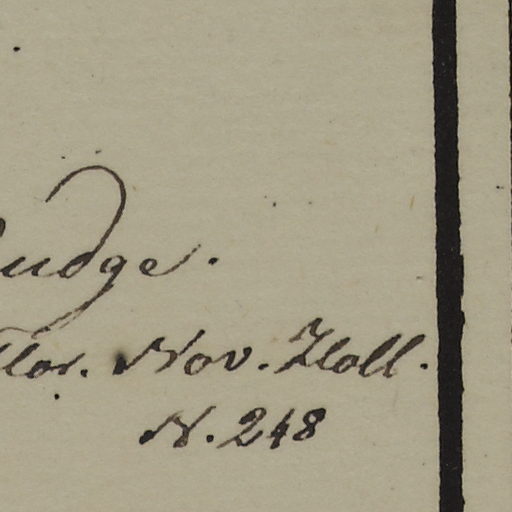 Rudge.
Flor. Nov. Holl.
N. 248